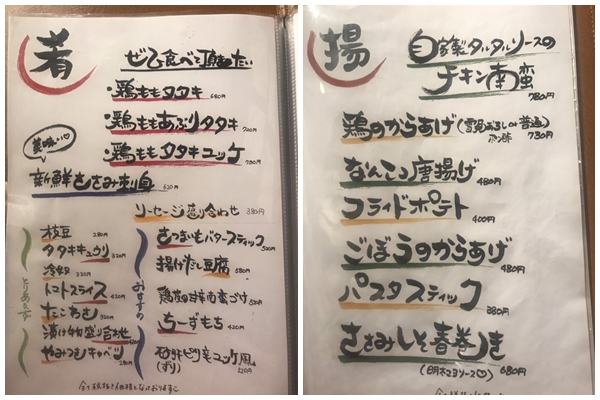 肴
ぜひ食べて頂きたい
・鶏ももタタキ 680円
・鶏ももあぶりタタキ 720円
・鶏ももタタキユッケ 750円
美味い♡
新鮮ささみ刺身 620円
ソーセージ盛り合わせ 380円
とりあえず
枝豆 280円
タタキキュウリ 320円
冷奴 320円
トマトスライス 420円
たこわさ 320円
漬け物盛り合わせ
やみつきキャベツ 280円
おすすめ
さつまいもバタースティック 520円
揚げだし豆腐 580円
ちーずもち 420円
砂肝ピリ辛ユッケ風
(ずり) 520円
全て税抜き価格となっております
揚
自家製タルタルソースの
チキン南蛮
780円
鶏のからあげ(雪見おろしor普通)
ポン酢 730円
なんこつ唐揚げ 480円
フライドポテト 400円
ごぼうのからあげ 480円
パスタスティック 380円
ささみしそ春巻き
(明太マヨソース♡) 680円